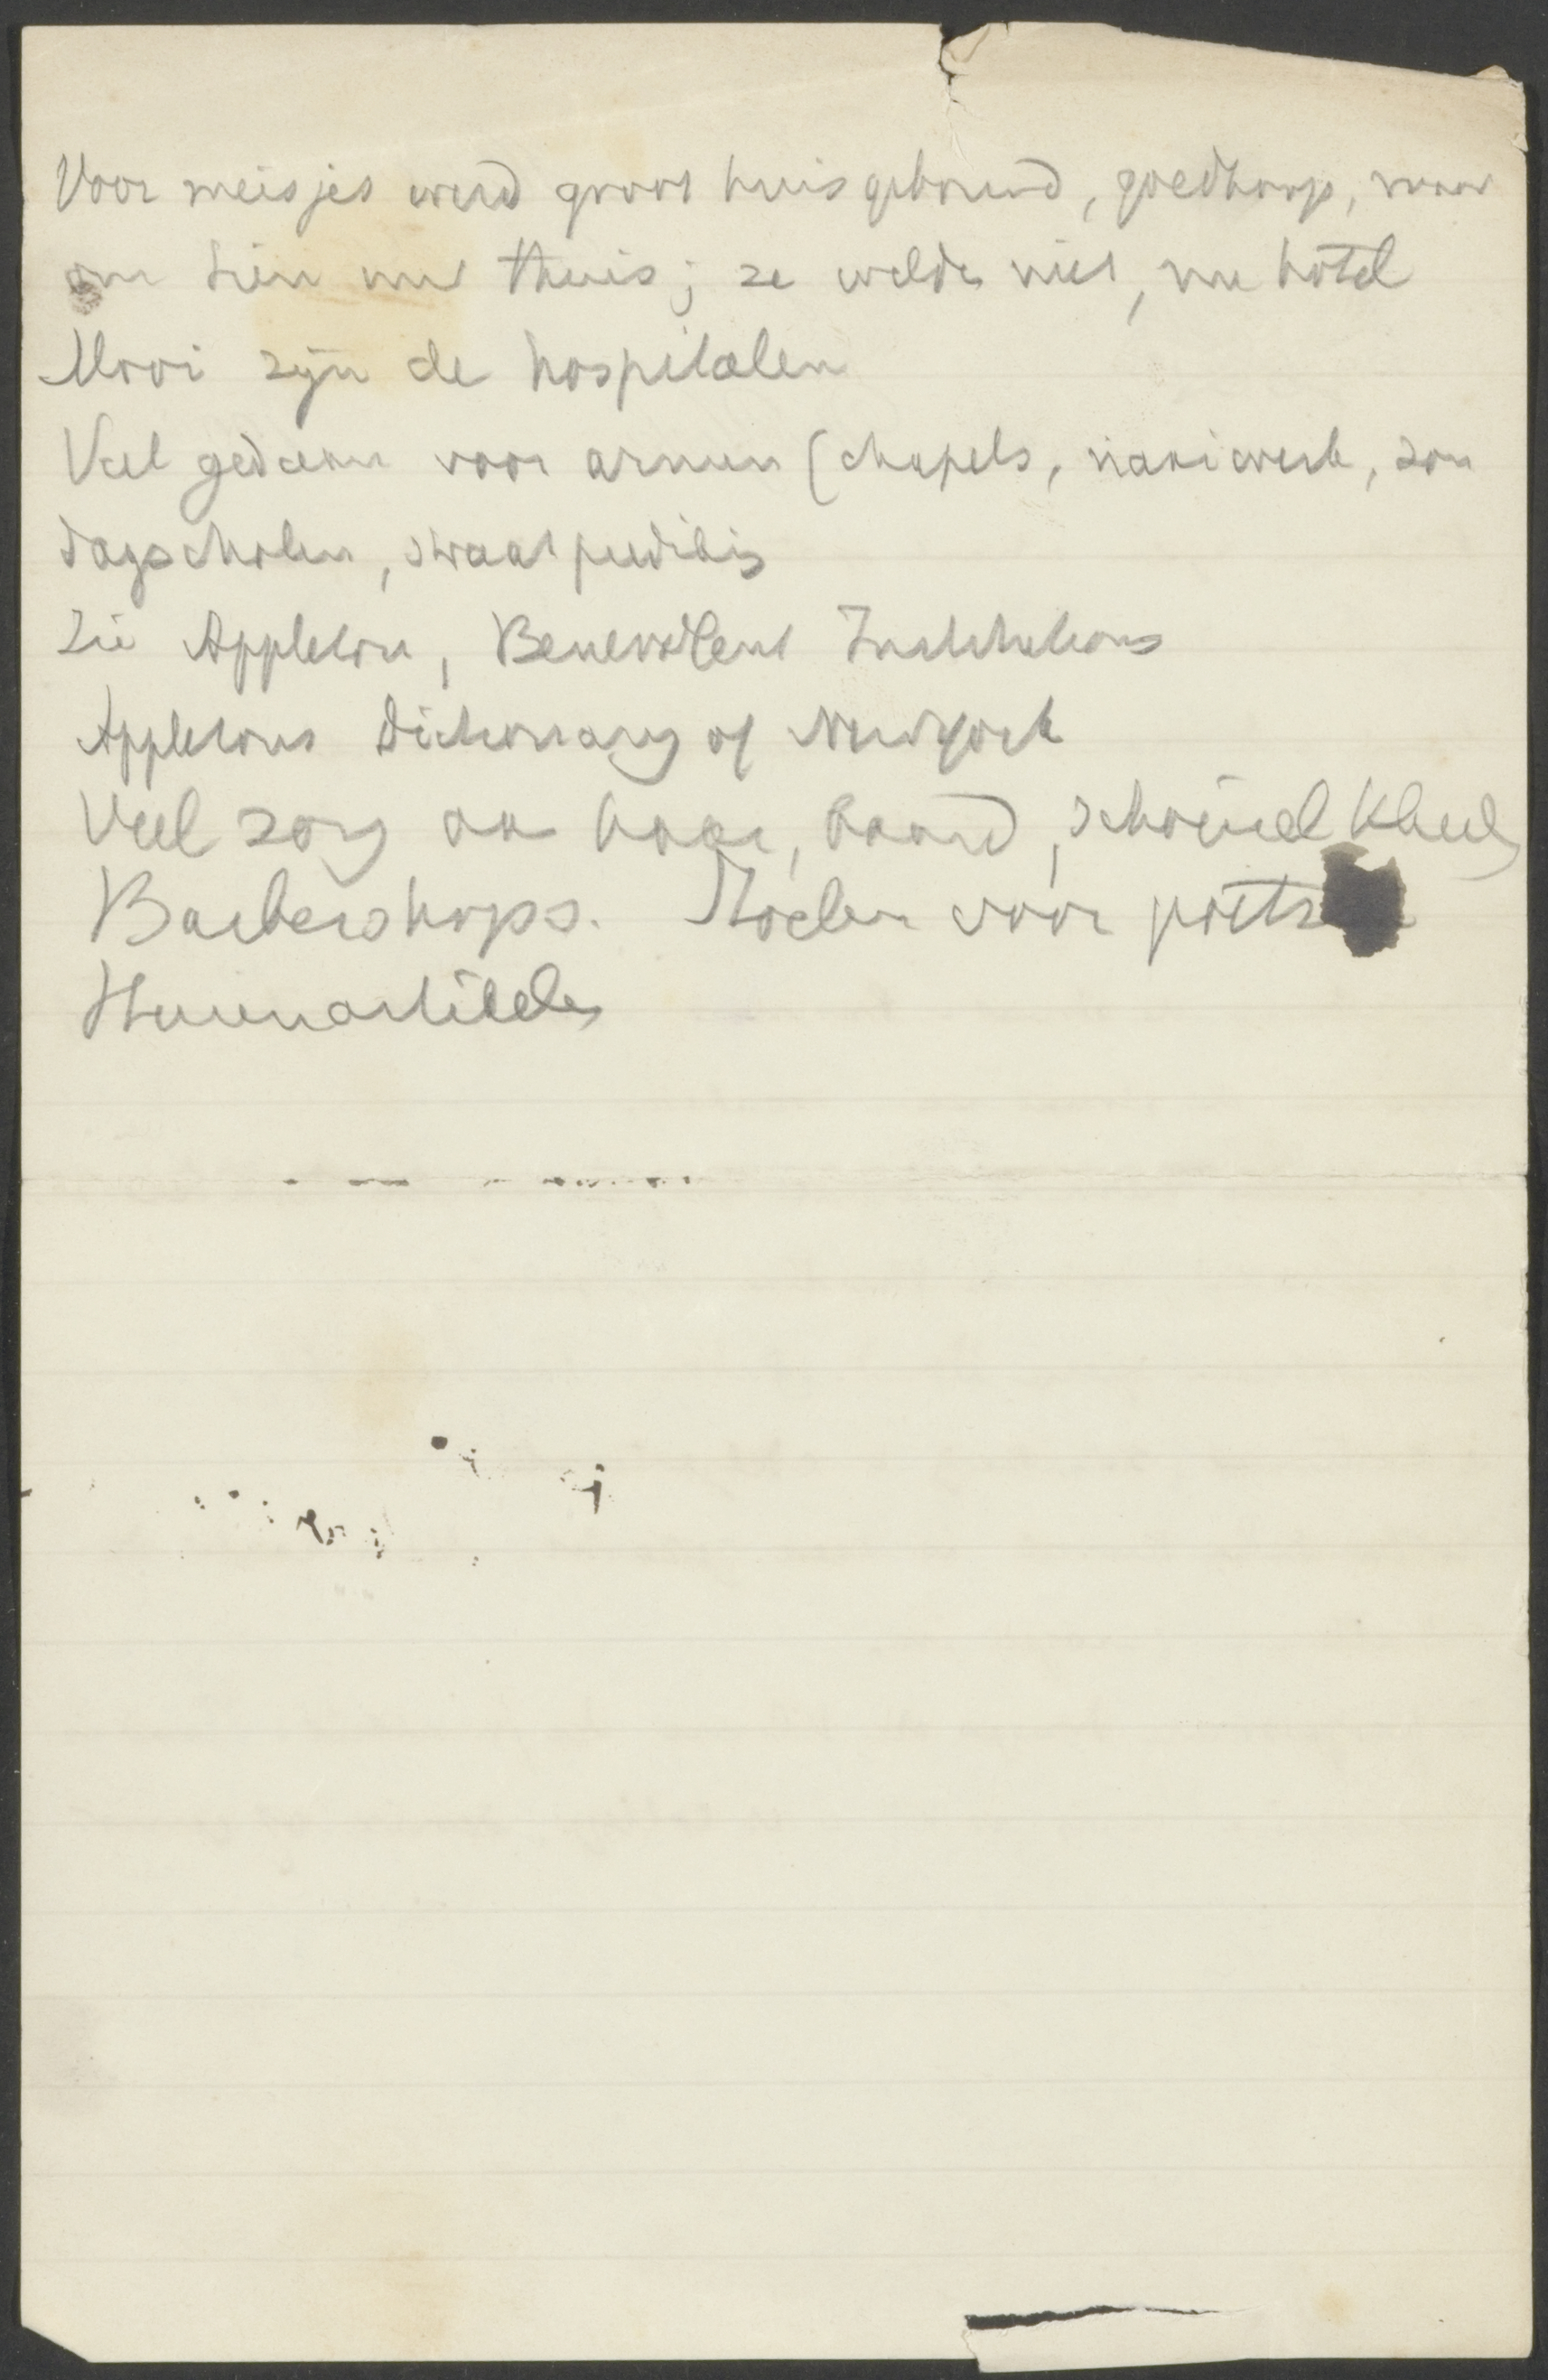 Voor meisjes werd groot huis gebouwd, goedkoop, maar
om tien uur thuis; ze wilden niet, nu hotel
Mooi zijn de hospitalen
Veel gedaan voor armen (chapels, naaiwerk, zon
dagscholen, straatpredik
Zie Appleton, Benevolent Institutions
Appletons Dictionary of New York
Veel zorg aan haar, baard, schoeisel kleed
Barbershops. Stoelen voor poetsen